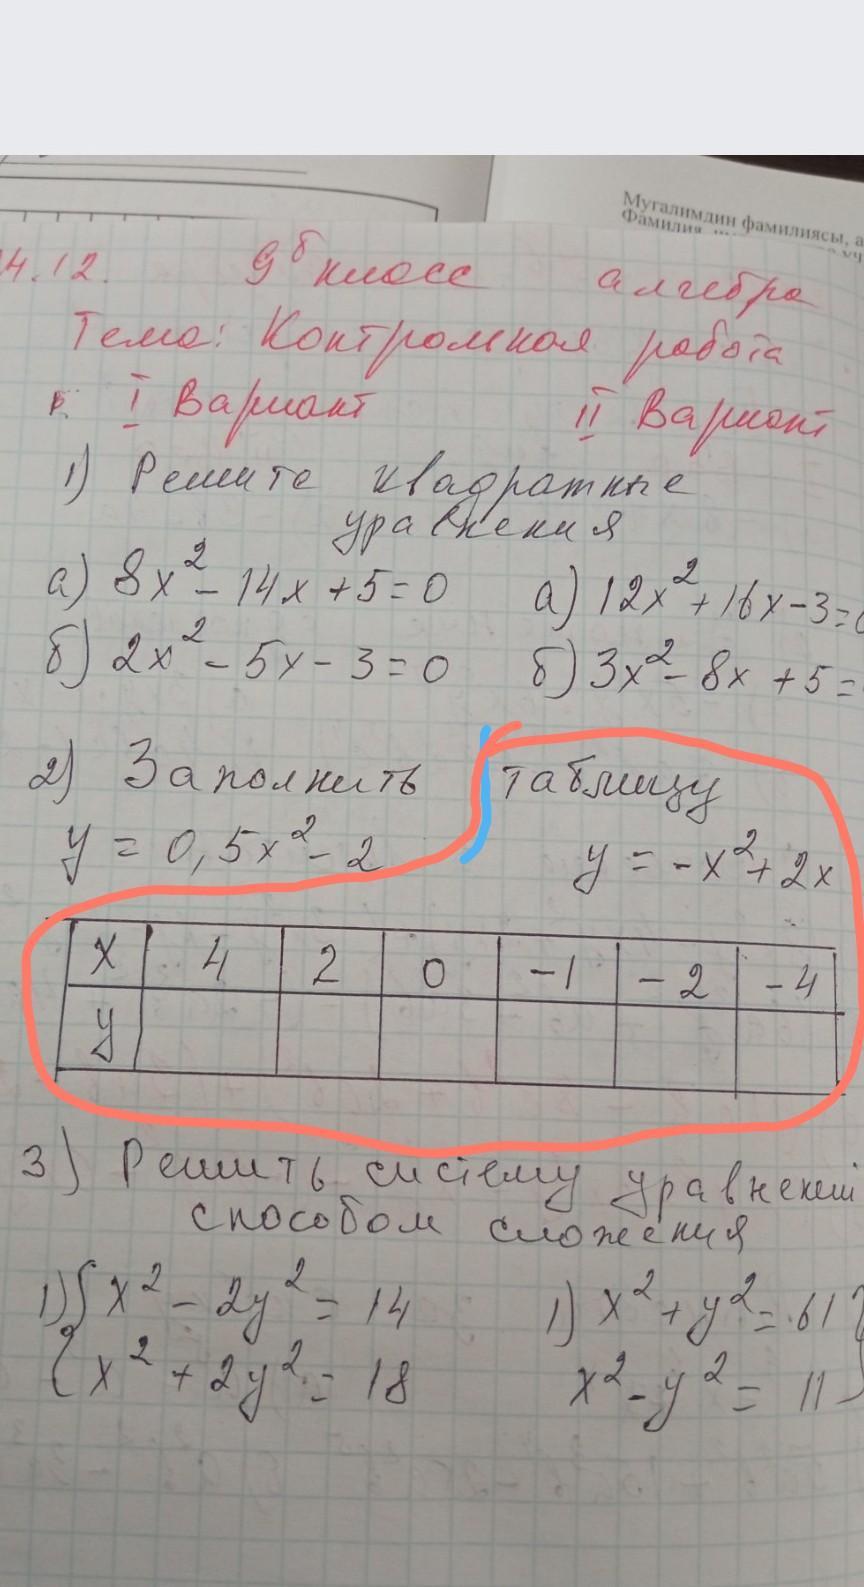 Мугалимдин фамилиясы, а
Фамилия
4.12. 9б класс алгебра
Тема: Контрольная работа
I Вариант II Вариант
1) Решите квадратные
уравнения
а) 8x² - 14x + 5 = 0 а) 12x² + 16x - 3 = 0
б) 2x² - 5x - 3 = 0 б) 3x² - 8x + 5 =
2) Заполнить таблицу
y = 0,5x² - 2 y = -x² + 2x
x 4 2 0 -1 -2 -4
y
3) Решить систему уравнений
способом сложения
1) { x² - 2y² = 14 1) x² + y² = 61 }
x² + 2y² = 18 x² - y² = 11